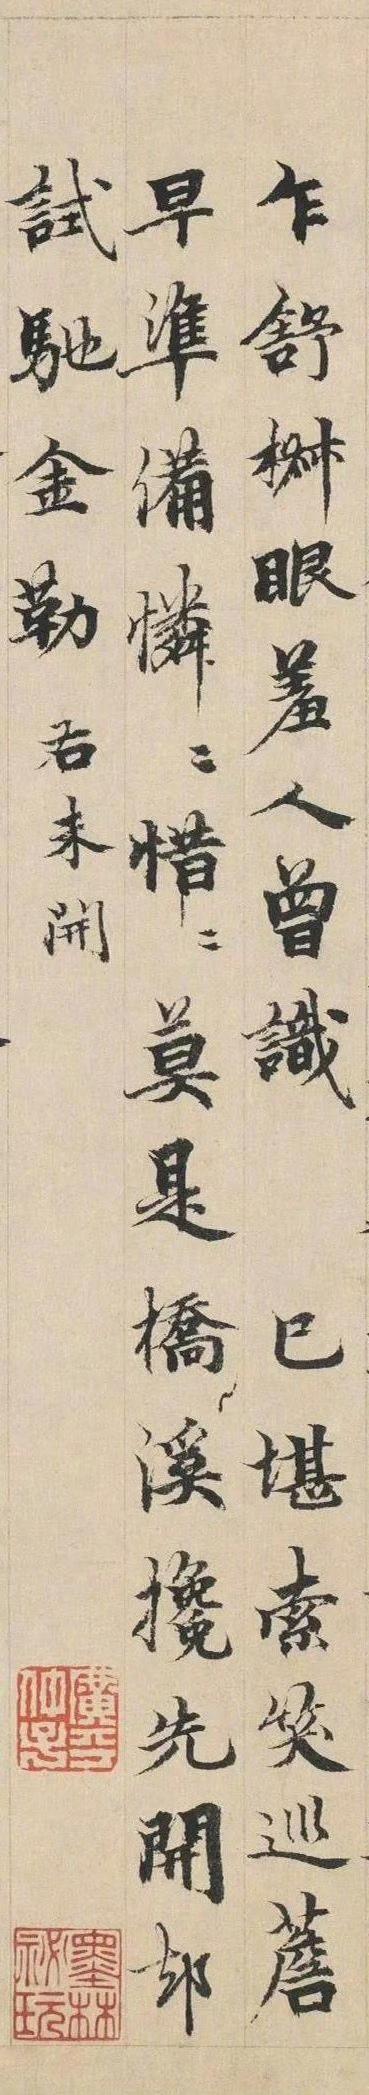 乍舒桝眼羞人曾識 已堪索笑巡簷
早準備憐〻惜〻莫是橋溪攙先開却
試馳金勒 右未開
墨林祕玩